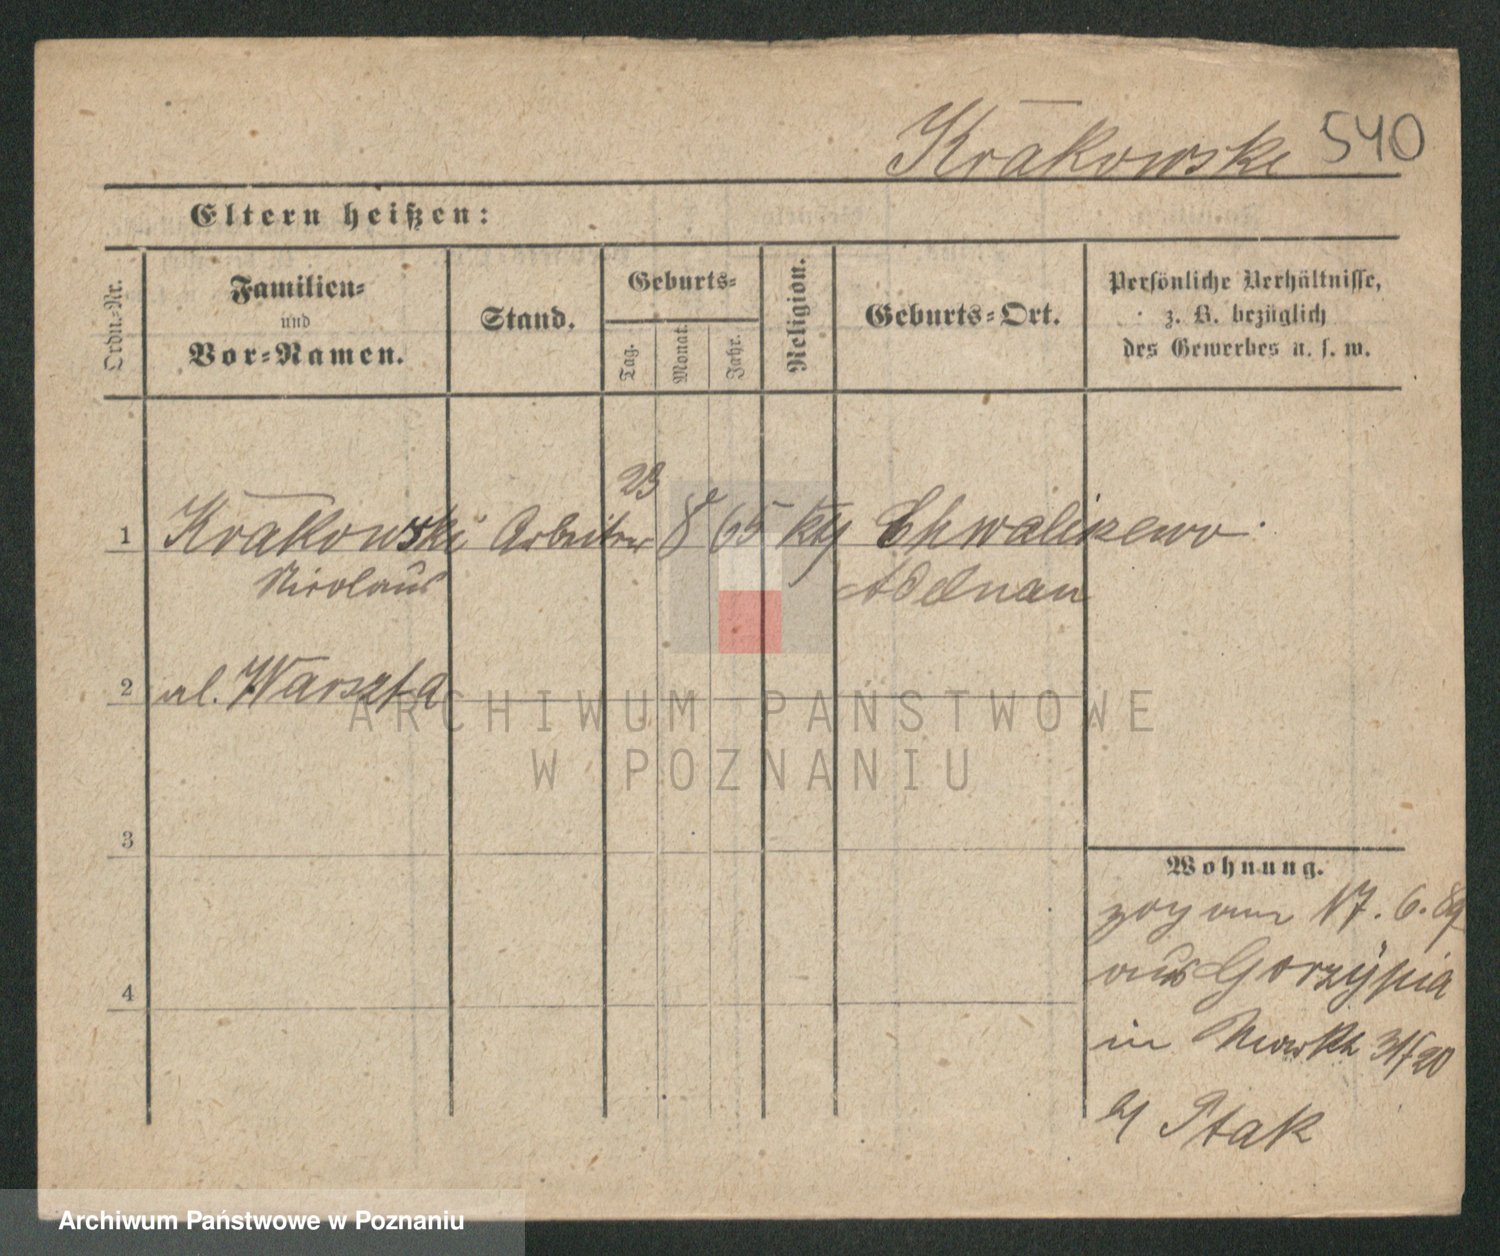 Krakowski 540
Eltern heißen:
Ordn.-Nr.
Familien-
und
Vor-Namen.
Stand.
Geburts-
Tag.
Monat.
Jahr.
Religion.
Geburts-Ort.
Persönliche Verhältnisse,
z. B. bezüglich
des Gewerbes u. s. w.
23
1 Krakowski Arbeiter 8 65 kth Chwaliszewo
Nicolaus Adelnau
2 Warszta
3
4
Wohnung.
zog am 17.6.89
aus
in Markt 31/20
b/ Ptak
ARCHIWUM PAŃSTWOWE
W POZNANIU
Archiwum Państwowe w Poznaniu